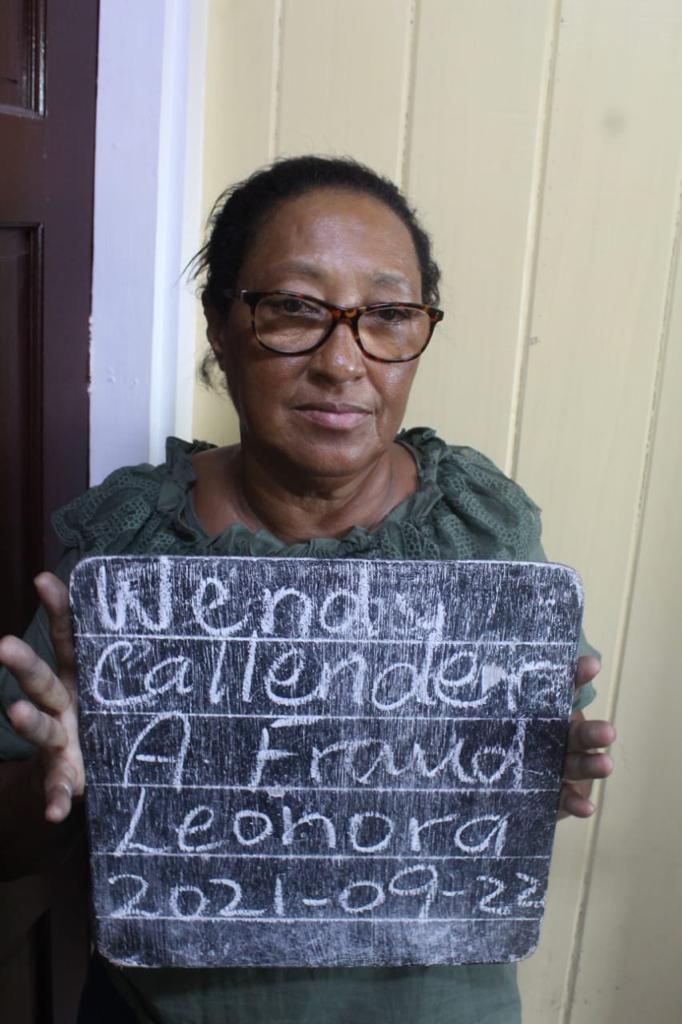 Wendy
Callender
A Fraud
Leonora
2021-09-22